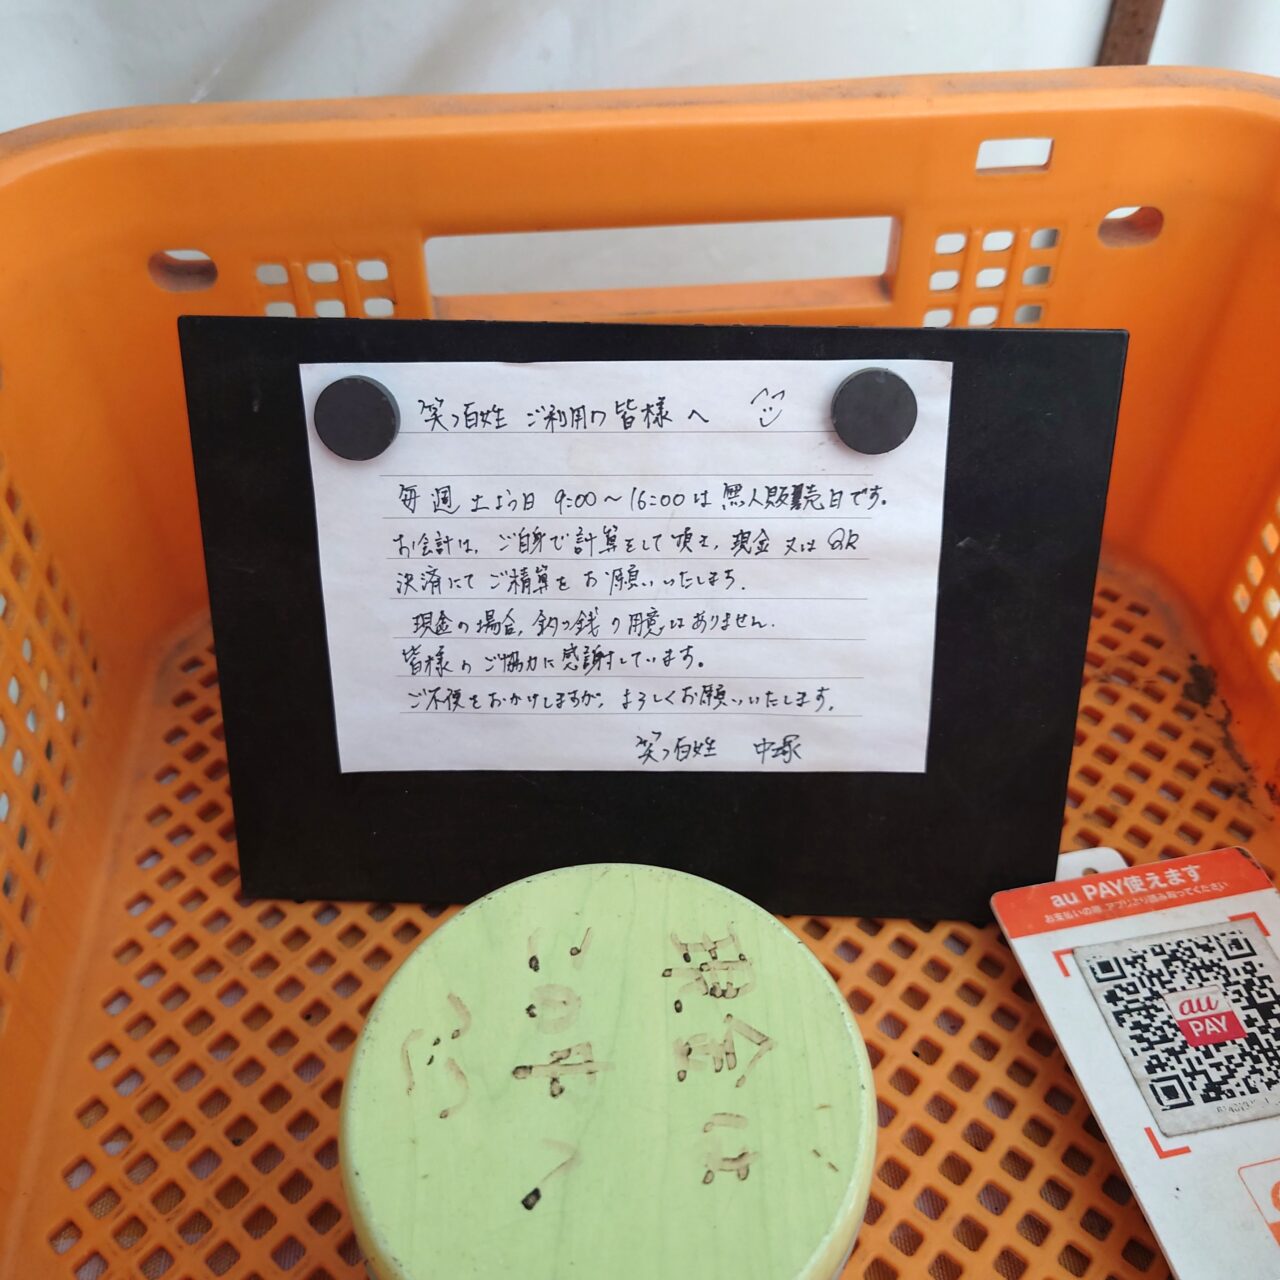 笑う百姓 ご利用の皆様へ
毎週 土よう日 9:00〜16:00は無人販売日です。
お会計は、ご自身で計算をして頂き、現金又はQR
決済にてご精算をお願いいたします.
現金の場合、釣り銭の用意はありません.
皆様のご協力に感謝しています。
ご不便をおかけしますが、よろしくお願いいたします。
笑う百姓 中塚
現金は
この中へ
au PAY使えます
お支払いの際、アプリより読み取ってください
au
PAY